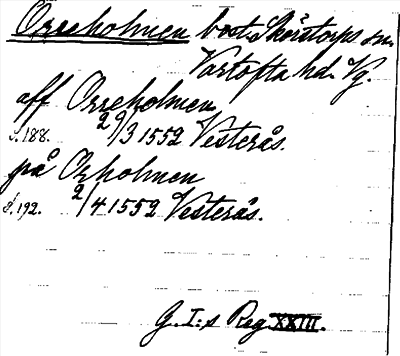 Orreholmen bost. Skörstorps sn.
Vartofta hd. Vg.
aff Orreholmen,
s. 188. 29/3 1552 Vesterås.
på Orholmen
s. 192. 2/4 1552 Vesterås.
G. I:s Reg. XXIII.